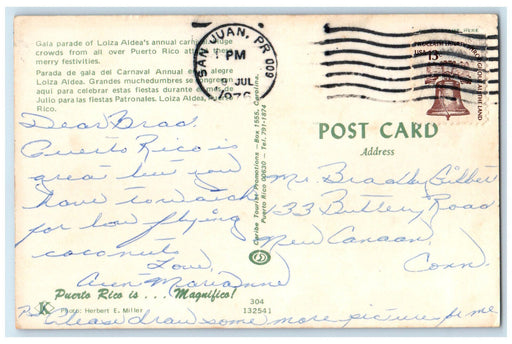 Gala parade of Loiza Aldea's annual carnival. Huge
crowds from all over Puerto Rico attend the
merry festivities.
Parada de gala del Carnaval Anual en el alegre
Loiza Aldea. Grandes muchedumbres se congregan
aqui para celebrar estas fiestas durante el mes de
Julio para las fiestas Patronales. Loiza Aldea,
Rico.
SAN JUAN, PR 009
PM
9 JUL
1976
USA 13c
POST CARD
Address
Dear Brad
Puerto Rico is
great but you
have to watch
for low flying
coconuts
Love,
Aunt Marianne
P.S. Please draw some more pictures for me
Caribe Tourist Promotions — Box 1555, Carolina,
Puerto Rico 00630 — Tel. 791-1874
Mr Bradley Gilbert
133 Buttery Road
New Canaan
Conn.
Puerto Rico is . . . Magnifico!
K
Photo: Herbert E. Miller
304
132541